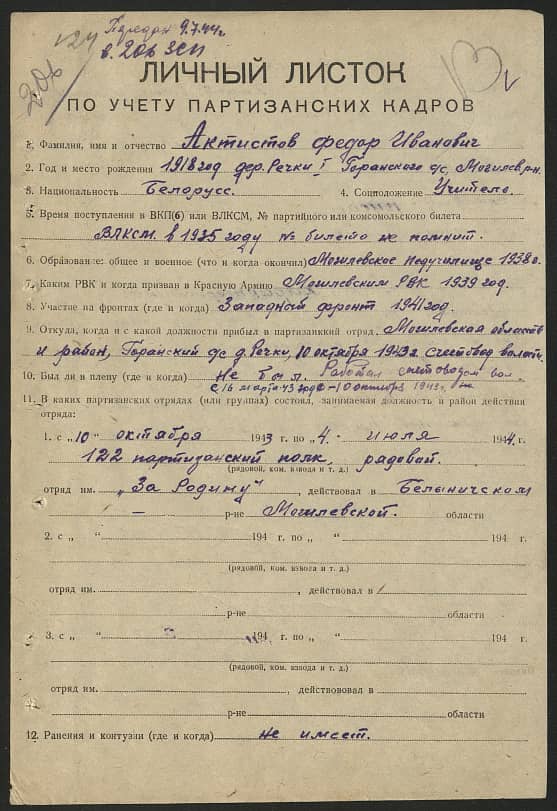 Передан 9.7.44г
124 в. 206 ЗСП
206
V
ЛИЧНЫЙ ЛИСТОК
ПО УЧЕТУ ПАРТИЗАНСКИХ КАДРОВ
1. Фамилия, имя и отчество Актистов Федор Иванович
2. Год и место рождения 1918 год дер. Речки I Горанского с/с, Могилев рн.
3. Национальность Белорусс. 4. Соцположение Учитель
5. Время поступления в ВКП(б) или ВЛКСМ, № партийного или комсомольского билета
ВЛКСМ. в 1935 году № билета не помнит.
6. Образование: общее и военное (что и когда окончил) Могилевское педучилище 1938г.
7. Каким РВК и когда призван в Красную Армию Могилевским РВК 1939 год.
8. Участие на фронтах (где и когда) Западный фронт 1941 год.
9. Откуда, когда и с какой должности прибыл в партизанкий отряд. Могилевская область
и район, Горанский с/с д. Речки, 10 октября 1943г. счетовод волости.
10. Был ли в плену (где и когда) не был. Работал счетоводом вол.
с 16 марта 43 года - 10 октября 1943г.
11. В каких партизанских отрядах (или группах) состоял, занимаемая должность и район действия
отряда:
1. с „10" октября 1943 г. по „4" июля 1944 г.
122 партизанский полк, рядовой.
(рядовой, ком. взвода и т. д.)
отряд им. „За Родину", действовал в Белыничском
— р-не Могилевской. области
2. с „ " 194 г. по „ " 194 г.
(рядовой, ком. взвода и т. д.)
отряд им. , действовал в
р-не области
3. с „ " 194 г. по „ " 194 г.
(рядовой, ком. взвода и т. д.)
отряд им. , действововал в
р-не области
12. Ранения и контузии (где и когда) не имеет.